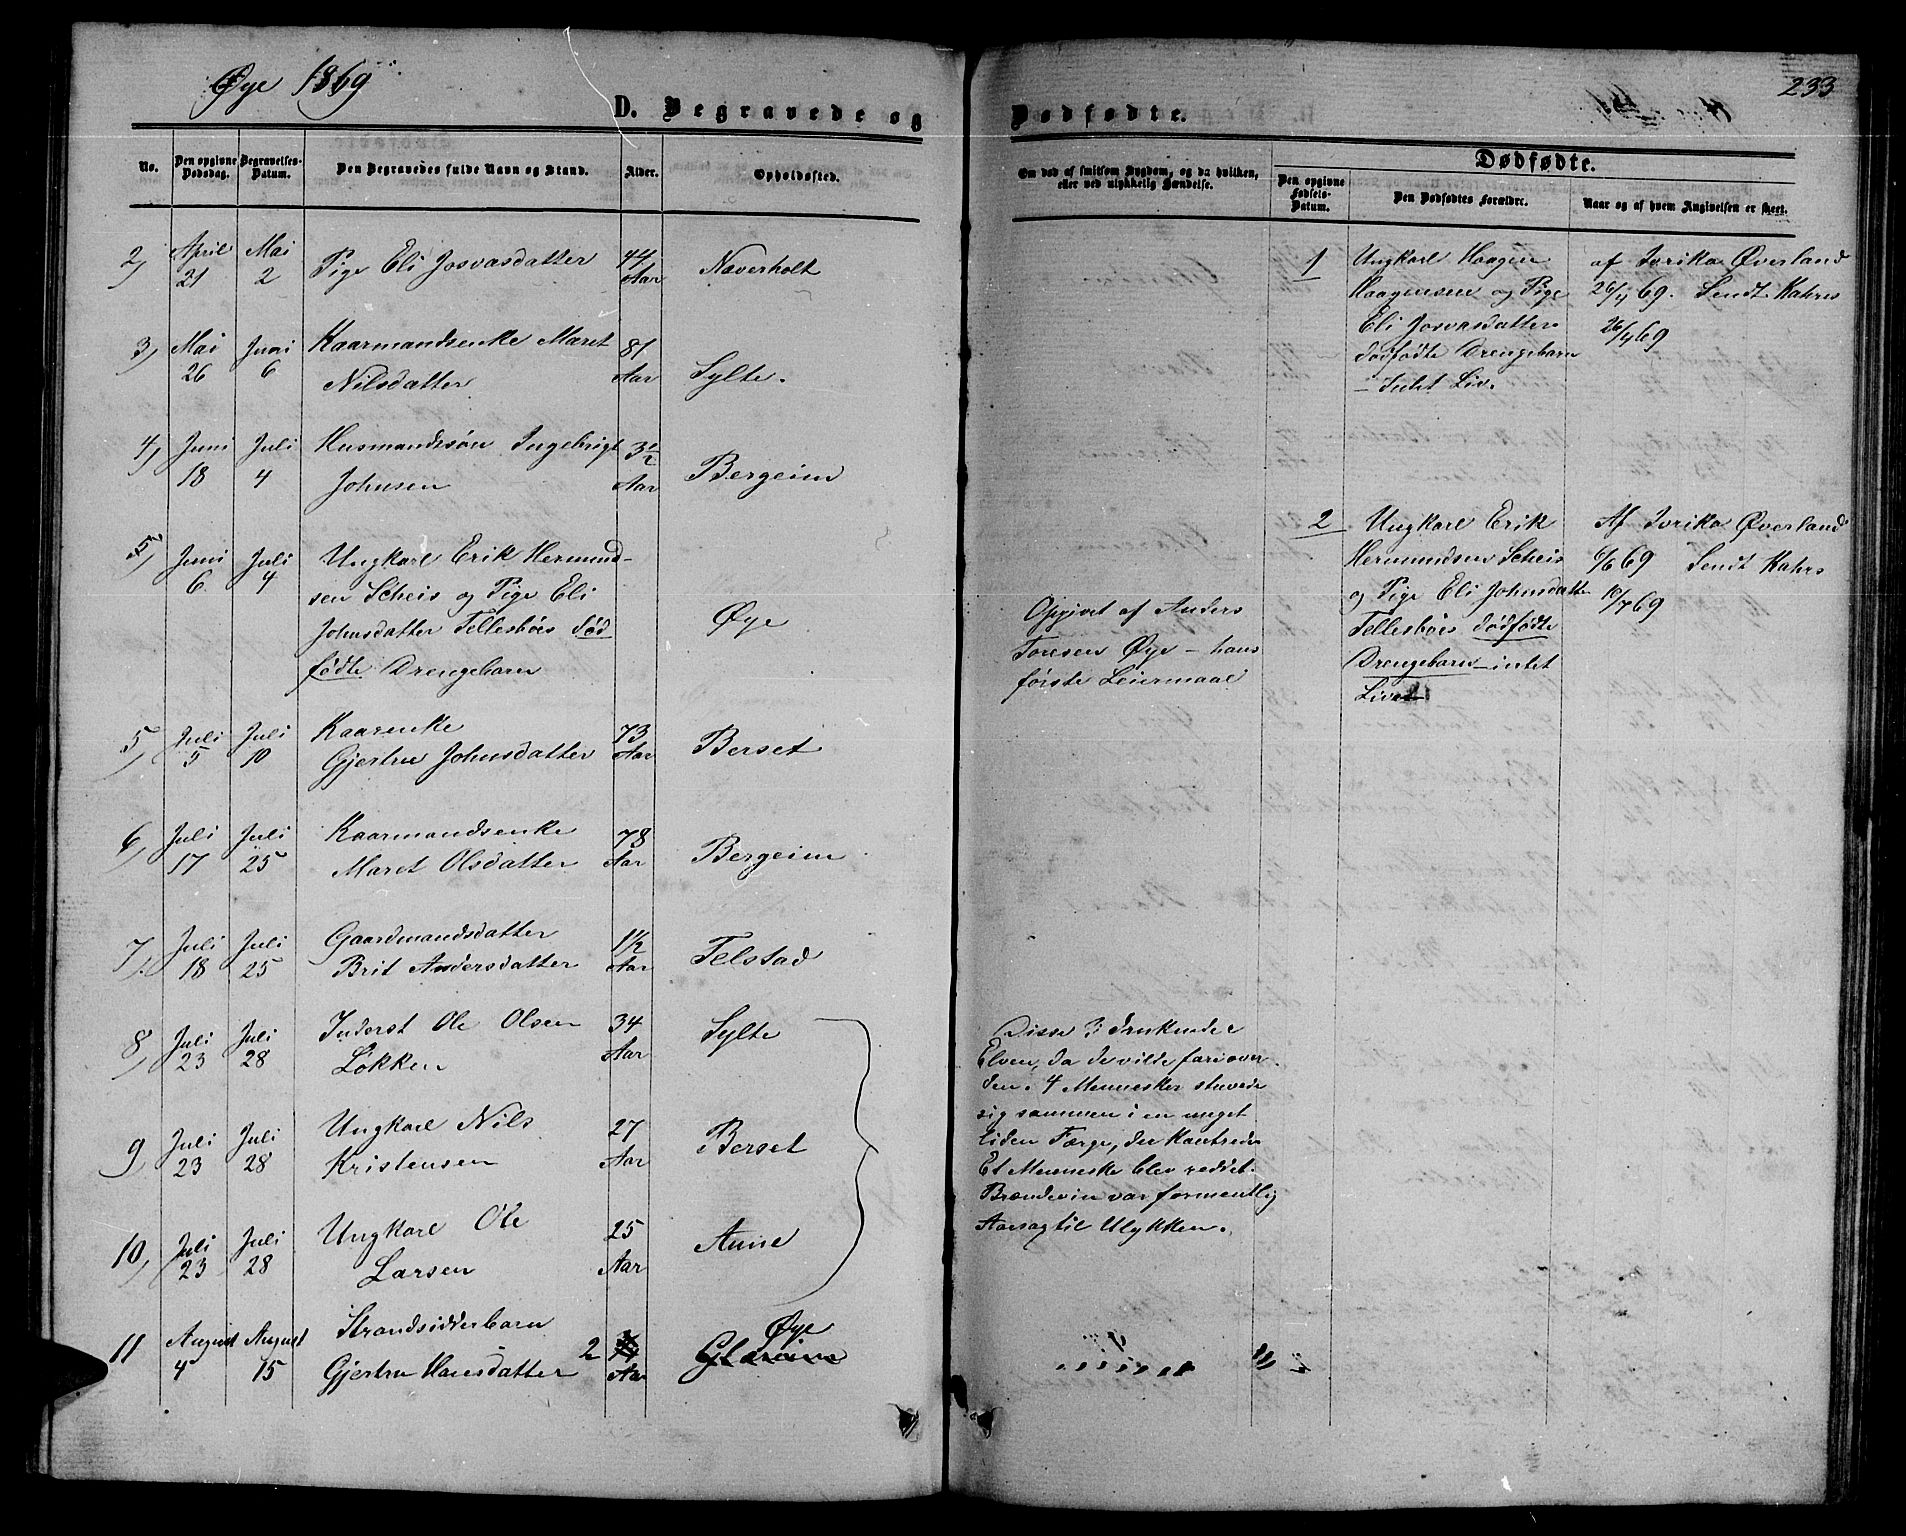 Øye 1869
233
D. Begravede og
Dødfødte.
No.
Den opgivne Dødsdag.
Begravelses-Datum.
Den Begravedes fulde Navn og Stand.
Alder.
Opholdssted.
Om død af smitsom Sygdom, og da hvilken, eller ved ulykkelig Hændelse.
Dødfødte.
Den opgivne Fødsels-Datum.
Den Dødfødtes Forældre.
Naar og af hvem Angivelsen er skeet.
2) April 21 Mai 2 Pige Eli Josvasdatter 44 Aar Naverholt
1 Ungkarl Haagen
Haagensen og Pige
Eli Josvasdatters
dødfødte Drengebarn
– Intet Liv.
af Ivrika Øverland
26/4 69. Sendt Kahrs
26/4 69
3) Mai 26 Juni 6 Kaarmandsenke Maret
Nilsdatter 81 Aar Sylte.
4) Juni 18 Juli 4 Husmandssøn Ingebrigt
Johnsen Aar Bergeim
5) Juni 6. Juli 4 Ungkarl Erik Hermund-
sen Scheis og Pige Eli
Johnsdatter Tellesbøes død
fødte Drengebarn
Øye
Opgivet af Anders
Toresen Øye – hans
første Leiermaal
2 Ungkarl Erik
Hermundsen Scheis
og Pige Eli Johnsdatter
Tellesbøes dødfødte
Drengebarn – intet
Liv
Af Ivrika Øverland
6/6 69 Sendt Kahrs
10/7 69
5) Juli 5 Juli 10 Kaarenke
Gjertrue Johnsdatter 73 Aar Berset
6) Juli 17 Juli 25 Kaarmandsenke
Maret Olsdatter 78 Aar Bergeim
7) Juli 18 Juli 25 Gaardmandsdatter
Brit Andersdatter 1 1/2 Aar Telstad
8) Juli 23 Juli 28 Inderst Ole Olsen
Løkken 34 Aar Sylte
9) Juli 23 Juli 28 Ungkarl Nils
Kristensen 27 Aar Berset
10) Juli 23 Juli 28 Ungkarl Ole
Larsen 25 Aar Aune
Disse 3 druknede i
Elven, da de vilde fare over
den. 4 Mennesker stuvede
sig sammen i en meget
liden Færge, der kantrede.
Et Menneske blev reddet.
Brændevin var formentlig
Aarsag til Ulykken.
11 August 4 August 15 Strandsidderbarn
Gjertru Hansdatter 2 Aar Øye
Glærum